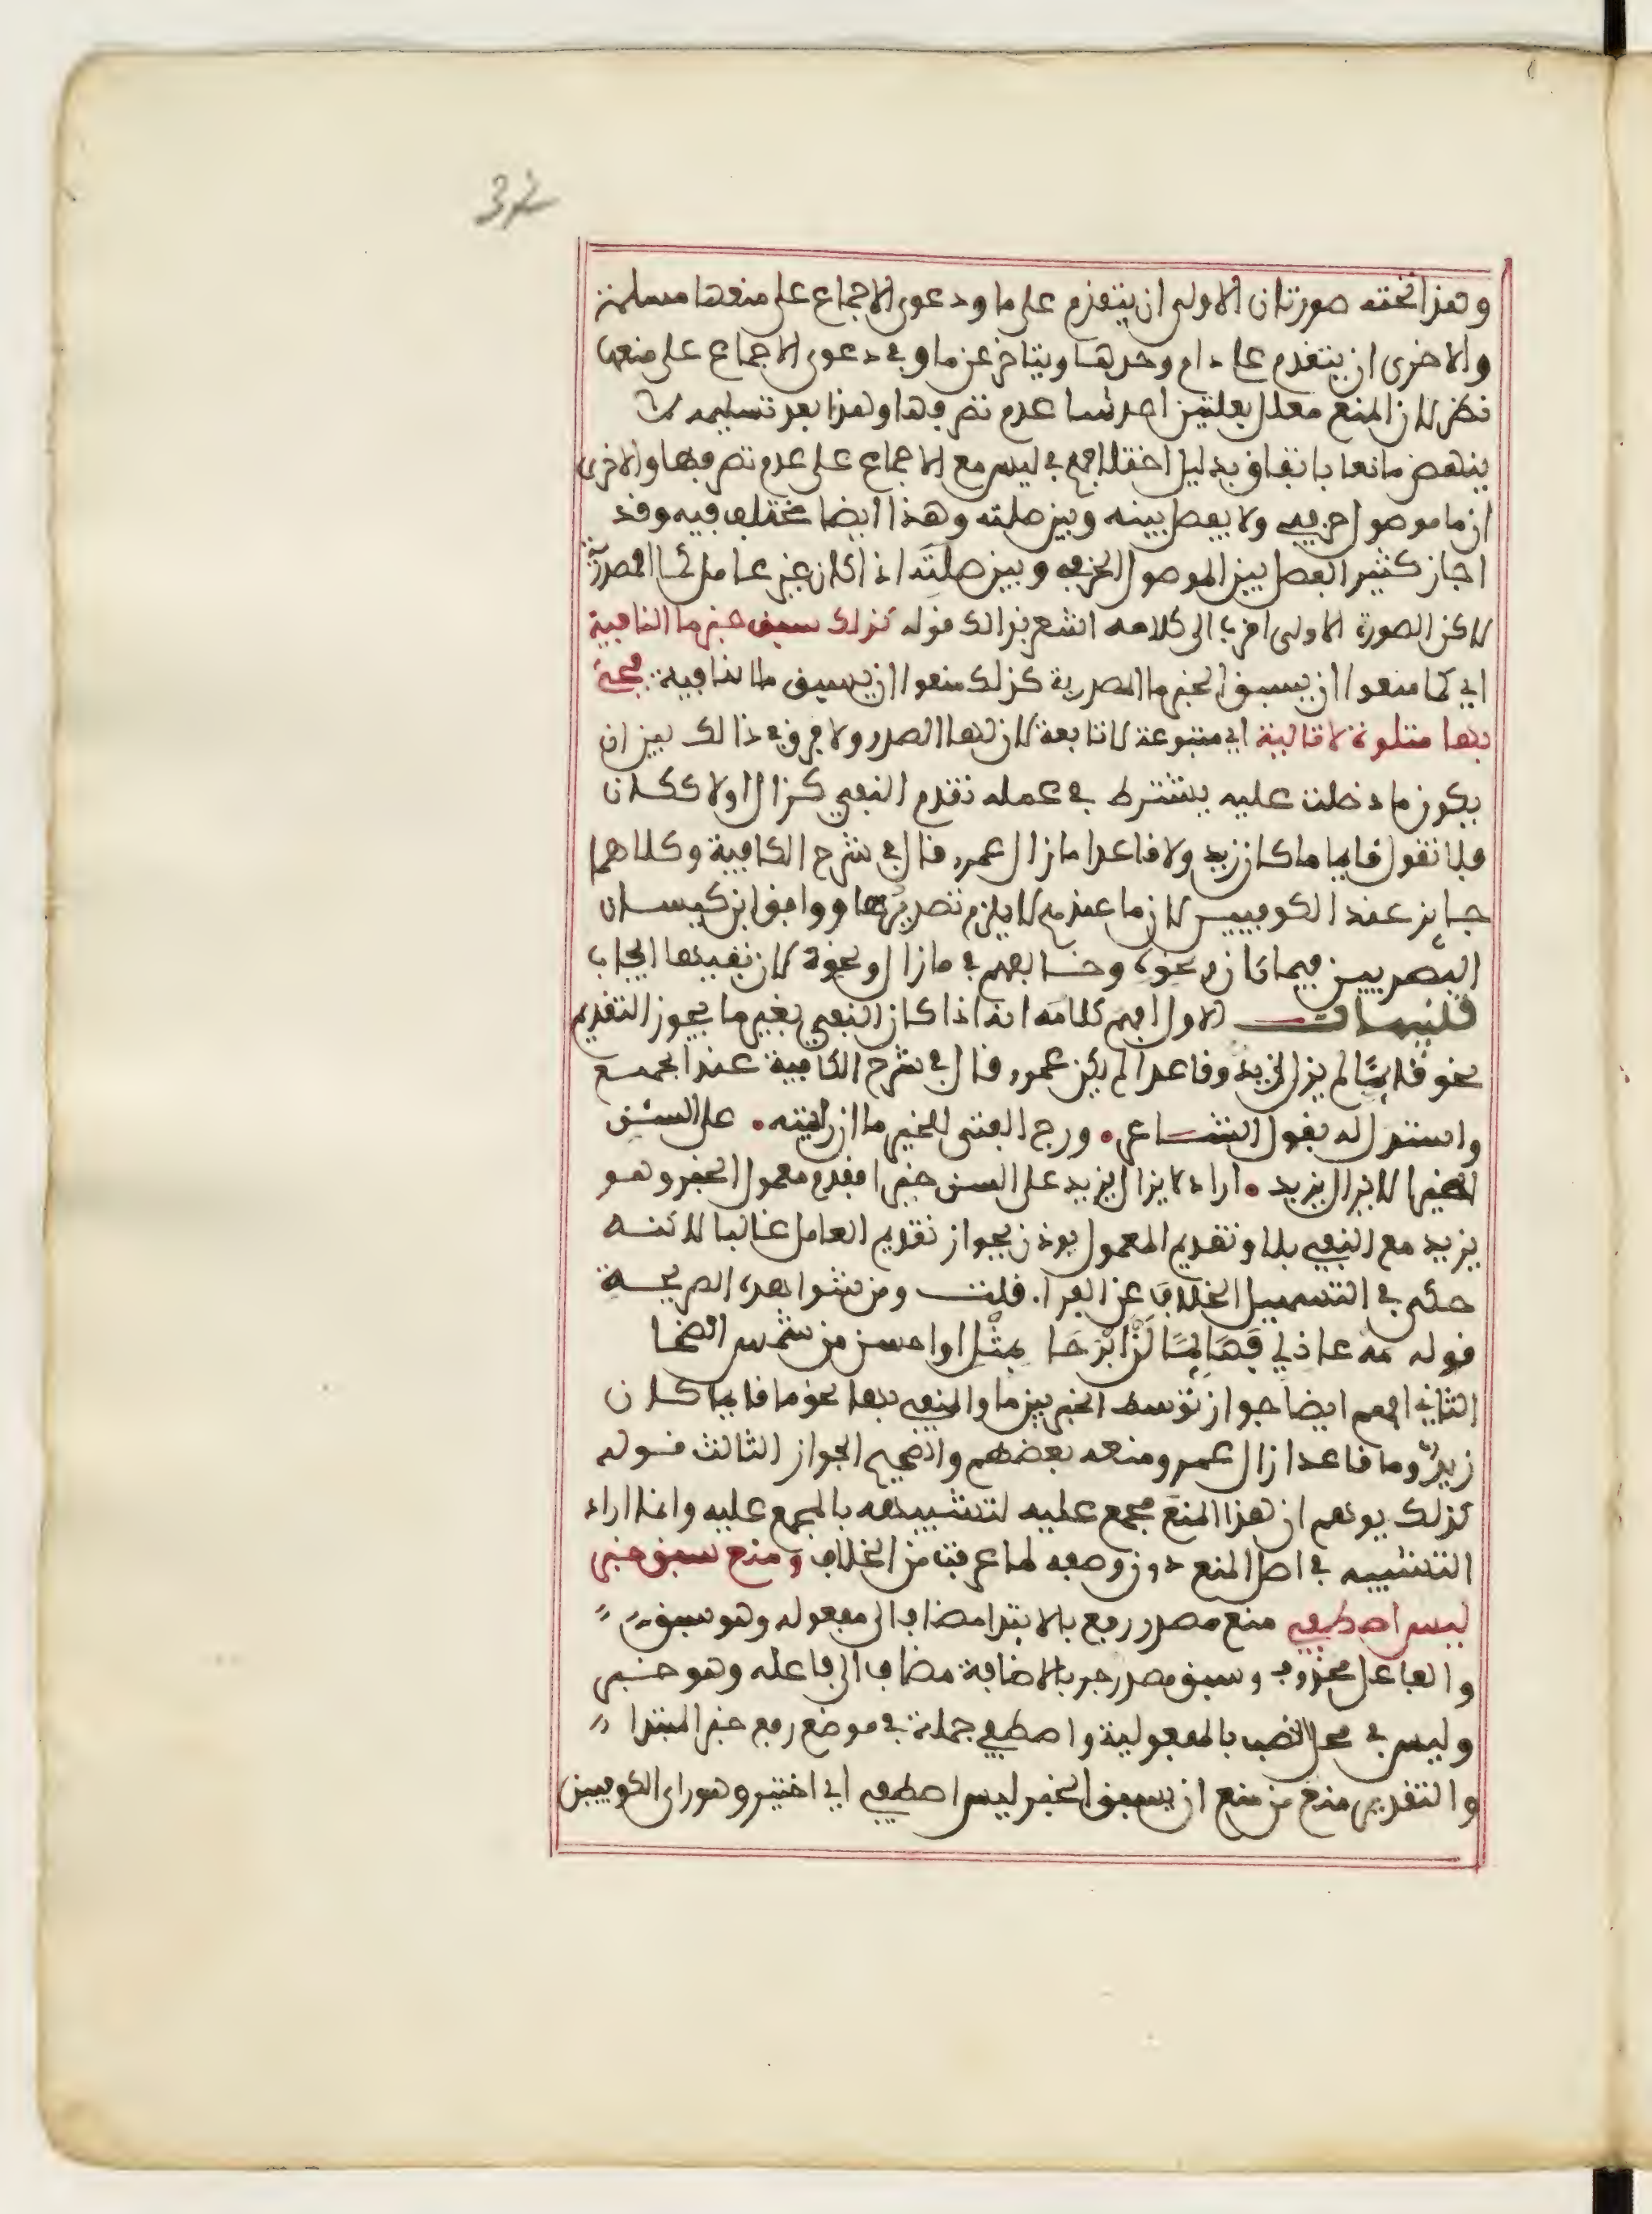 32
وهذا تحته صورتان الاولى ان يتقدم على ما ودعوى الاجماع على منعها مسلمة
والاخرى ان يتقدم على دام وحدها ويتاخر عن ما وفي دعوى الاجماع على منعها
نظر لان المنع معلل بعلتين احداهما عدم تصرفها وهذا بعد تسليمه لا
ينهض مانعا باتفاق بدليل اختلافهم في ليس مع الاجماع على عدم تصرفها والاخرى
ان ما موصول حرفي ولا يفصل بينه وبين صلته وهذا ايضا مختلف فيه وقد
اجاز كثير الفصل بين الموصول الحرفي وبين صلته اذا كان غير عامل كما المصدرية
لاكن الصورة الاولى اقرب الى كلامه اشعر بذالك قوله كذلك سبق خبر ما النافية
اي كما منعوا ان يسبق الخبر ما المصدرية كذلك منعوا ان يسبق ما النافية فجئ
بها متلوة لا تالية اي متبوعة لا تابعة لان لها الصدر ولا فرق في ذالك بين ان
يكون ما دخلت عليه يشترط في عمله تقدم النفي كزال اولا ككان
فلا تقول قايما ما كان زيد ولا قاعدا ما زال عمرو قال في شرح الكافية وكلاهما
جايز عند الكوفيين لان ما عندهم لا يلزم تصديرها ووافق ابن كيسان
البصريين فيما كان ونحوه وخالفهم في ما زال ونحوه لان نفيها ايجاب
تنبيهات الاول افهم كلامه انه اذا كان النفي بغير ما يجوز التقديم
نحو قايما لم يزل زيد وقاعدا لم يكن عمرو قال في شرح الكافية عند الجميع
واستدل له بقول الشاعر ورج الفتى للخير ما ان رايته على السن
خيرا لا يزال يزيد اراد لا يزال يزيد على السن خيرا فقدم معمول الخبر وهو
يزيد مع النفي بلا وتقديم المعمول يوذن بجواز تقديم العامل غالبا لاكنه
حكى في التسهيل الخلاف عن الفرا. قلت ومن شواهده الصريحة
قوله مه عاذلي فهايما لن ابرحا بمثل او احسن من شمس الضحا
الثاني افهم ايضا جواز توسط الخبر بين ما والمنفي بها نحو ما قايما كان
زيد وما قاعدا زال عمرو ومنعه بعضهم والصحيح الجواز الثالث قوله
كذلك يوهم ان هذا المنع مجمع عليه لتشبيهه بالمجمع عليه وانما اراد
التشبيه في اصل المنع دون وصفه لما عرفت من الخلاف ومنع سبق خبر
ليس اصطفي منع مصدر رفع بالابتدا مضاف الى مفعوله وهو سبق
والفاعل محذوف وسبق مصدر جر بالاضافة مضاف الى فاعله وهو خبر
وليس في محل النصب بالمفعولية واصطفي جملة في موضع رفع خبر المبتدا
والتقدير منع من منع ان يسبق الخبر ليس اصطفي اي اختير وهو راى الكوفيين